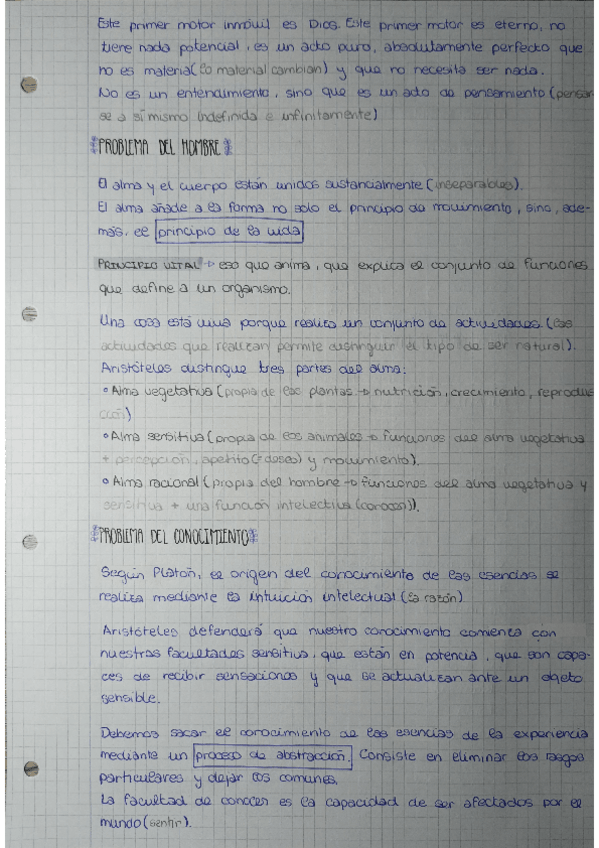 Este primer motor inmóvil es Dios. Este primer motor es eterno, no
tiene nada potencial, es un acto puro, absolutamente perfecto que
no es materia (lo material cambian) y que no necesita ser nada.
No es un entendimiento, sino que es un acto de pensamiento (pensar-
se a sí mismo indefinida e infinitamente)
PROBLEMA DEL HOMBRE
El alma y el cuerpo están unidos sustancialmente (inseparables).
El alma añade a la forma no solo el principio de movimiento, sino, ade-
más, el principio de la vida
PRINCIPIO VITAL → eso que anima, que explica el conjunto de funciones
que define a un organismo.
Una cosa está viva porque realiza un conjunto de actividades. (las
actividades que realizan permite distinguir el tipo de ser natural).
Aristóteles distingue tres partes del alma:
• Alma vegetativa (propia de las plantas → nutrición, crecimiento, reproduc-
ción)
• Alma sensitiva (propia de los animales → funciones del alma vegetativa
+ percepción, apetito (=deseo) y movimiento).
• Alma racional (propia del hombre → funciones del alma vegetativa y
sensitiva + una función intelectiva (conocer)).
PROBLEMA DEL CONOCIMIENTO
Según Platón, el origen del conocimiento de las esencias se
realiza mediante la intuición intelectual (la razón)
Aristóteles defenderá que nuestro conocimiento comienza con
nuestras facultades sensitiva, que están en potencia, que son capa-
ces de recibir sensaciones y que se actualizan ante un objeto
sensible.
Debemos sacar el conocimiento de las esencias de la experiencia
mediante un proceso de abstracción. Consiste en eliminar los rasgos
particulares y dejar los comunes.
La facultad de conocer es la capacidad de ser afectados por el
mundo (sentir).